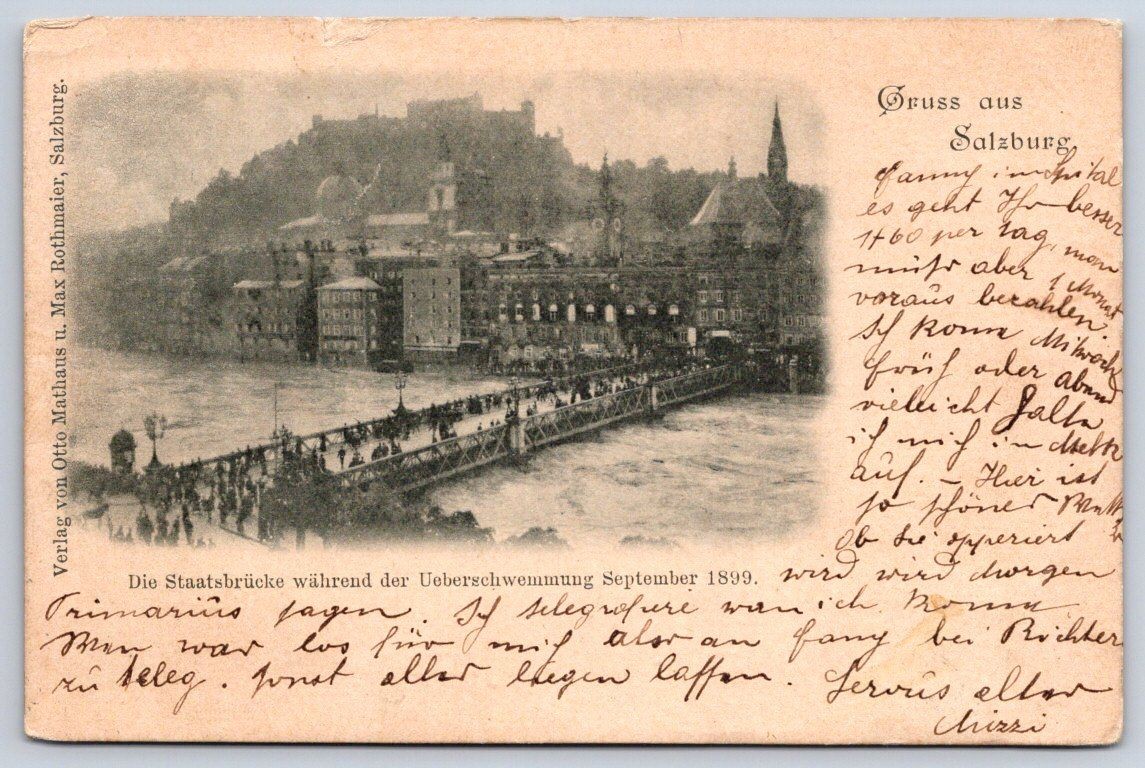 Verlag von Otto Mathaus u. Max Rothmaier, Salzburg.
Gruss aus
Salzburg.
Fanny im Spital
es geht Ihr besser
1 f 60 per Tag, man
muß aber 1 Monat
voraus bezahlen,
Ich komme Mitwoch
früh oder abend
vieleicht halte
ich mich in
auf. – Hier ist
so schönes
Ob sie opperiert
wird wird morgen
Die Staatsbrücke während der Ueberschwemmung September 1899.
Primariüs sagen. Ich telegrafiere wan ich komme
Wen was los für mich also an Fany bei Richter
zu teleg. sonst alles liegen lassen. Servus alter
Mizzi